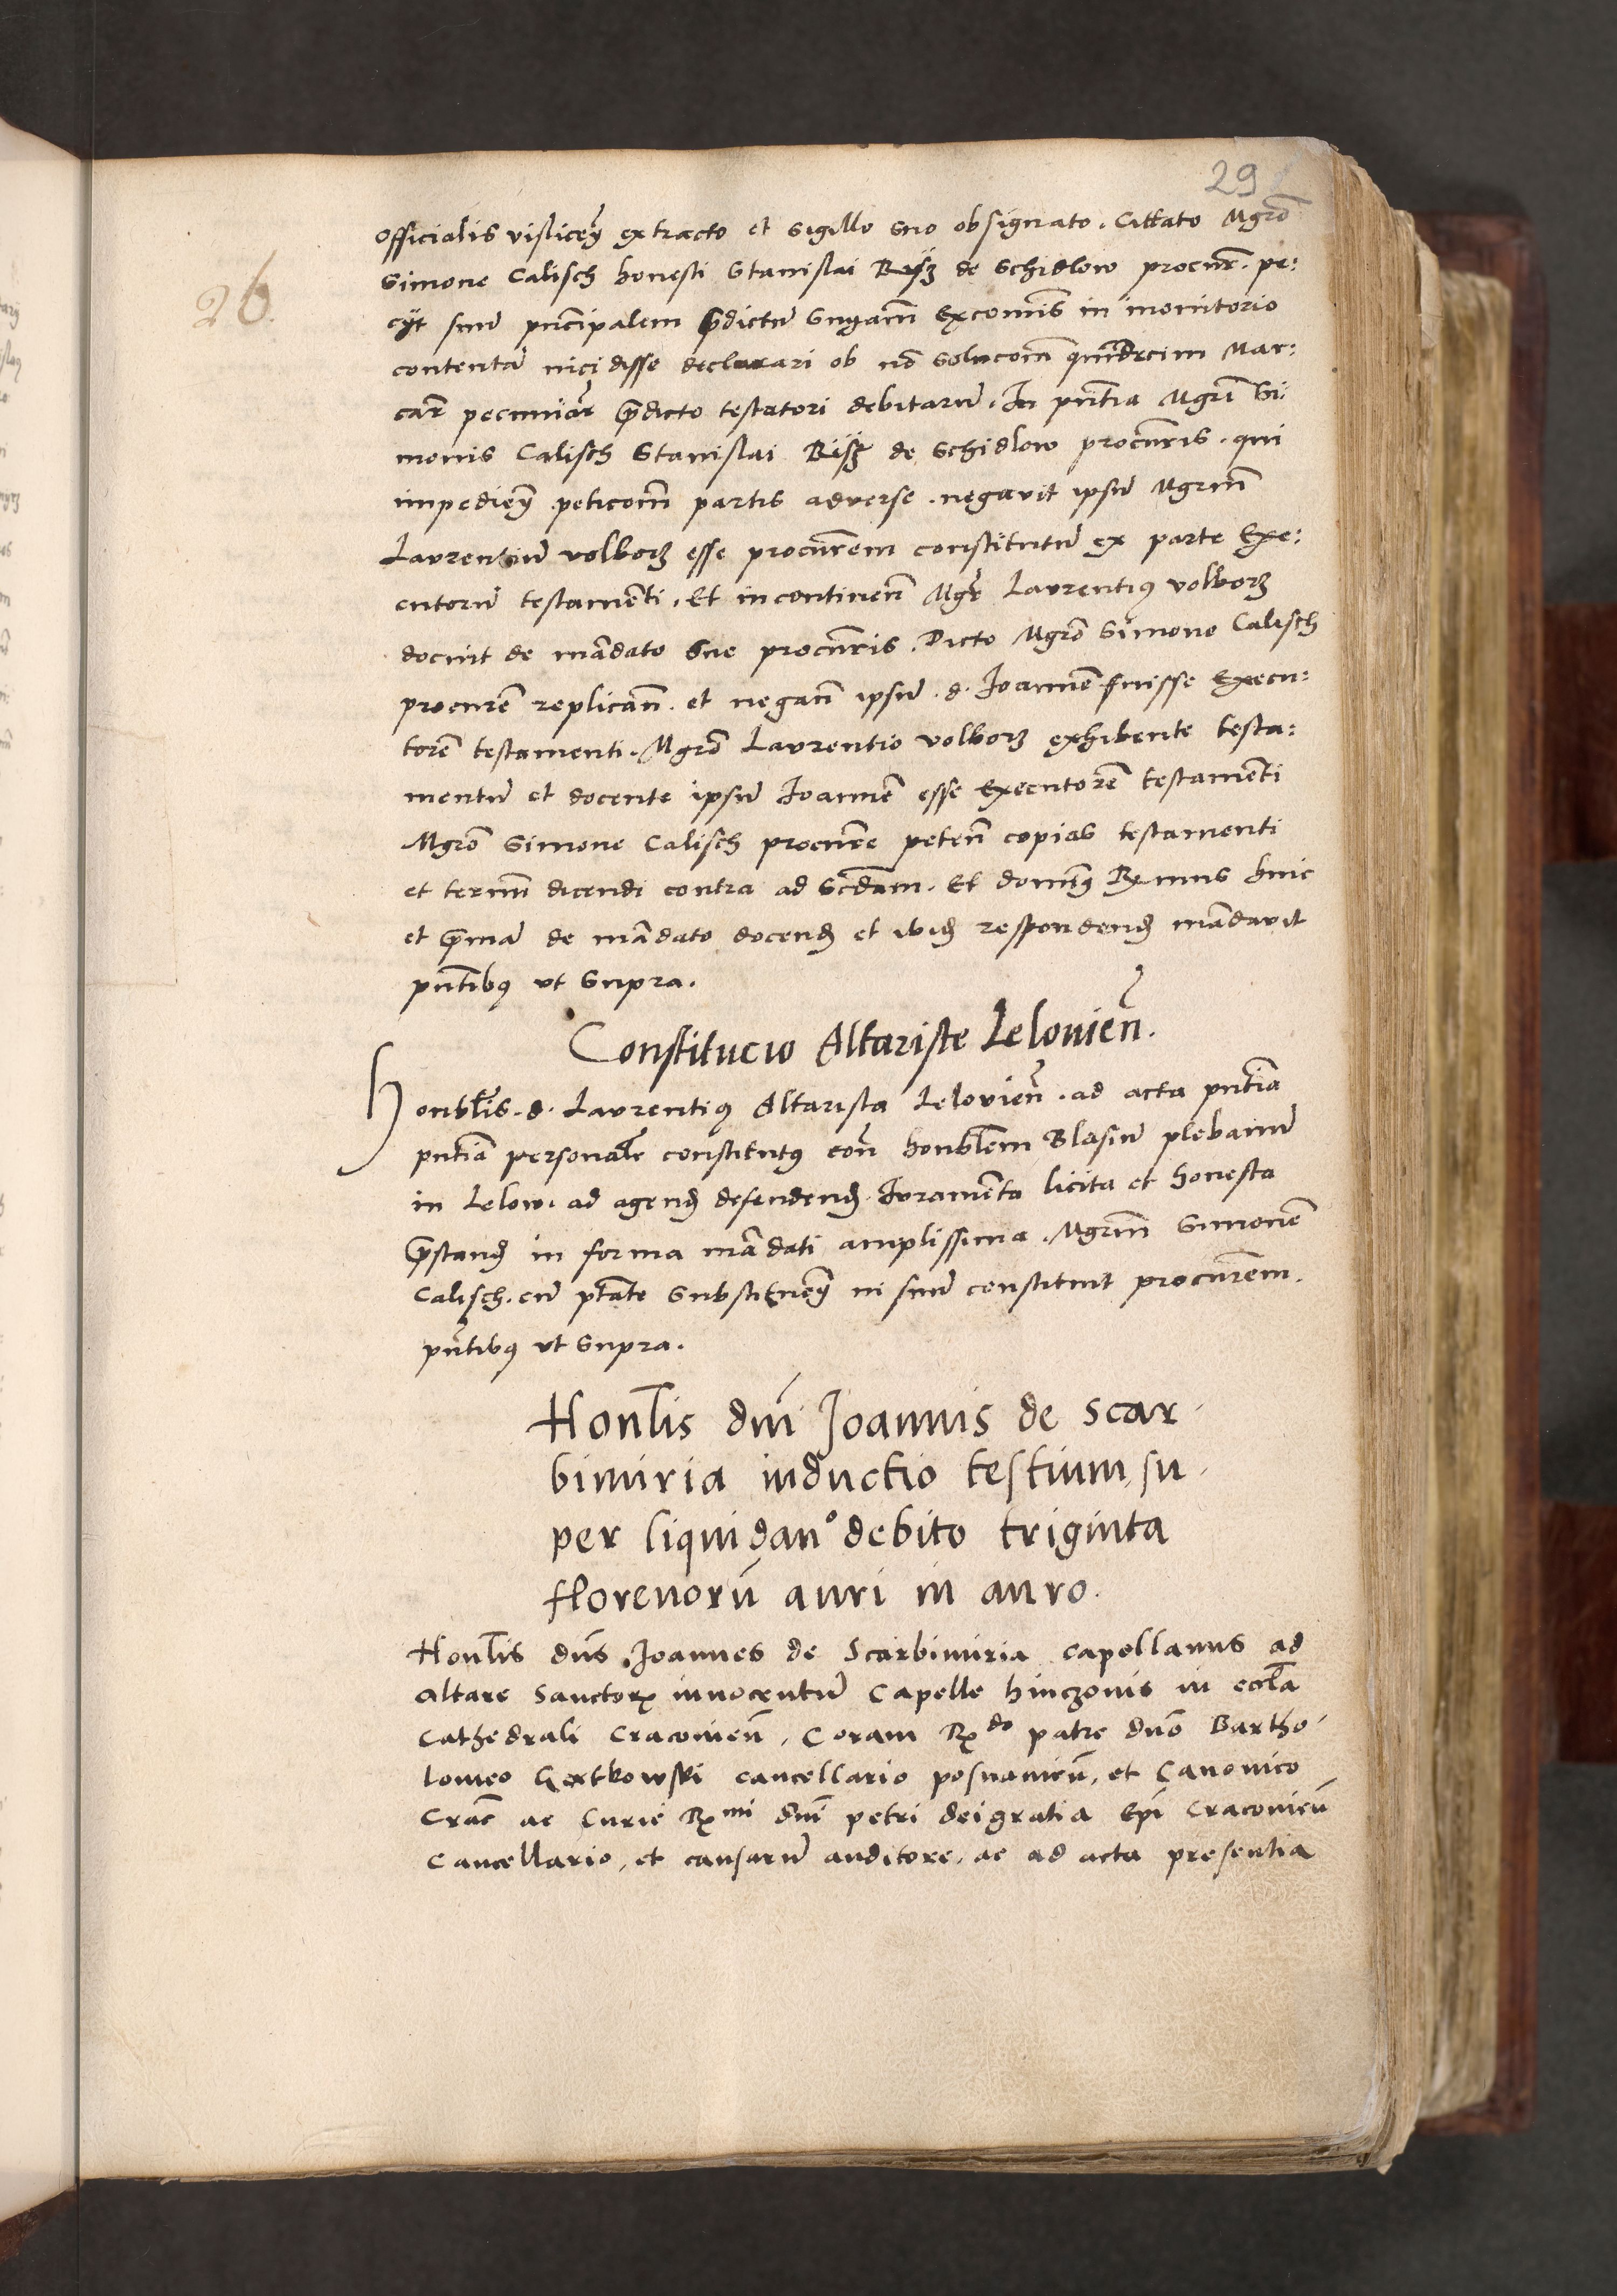 29
26.
officialis vislicen̄ extracto et sigillo suo obsignato. Cittato Mgrō
Simone Calisch honesti Stanislai Risz de Schidlow procur̄. pe:
cijt suū principalem p̄dictū sn̄iam Excomīs in monitorio
contentā incidisse declarari ob nō solucōm quindecim Mar:
car̄ pecuniar̄ p̄dicto testatori debitarū. In pn̄tia Mgrī Si:
monis Calisch Stanislai Risz de Schidlow procur̄is. qui
impedien̄ peticōm partis adverse. negavit ipsū Mgrm̄
Laurentiū volborz esse procur̄em constitutū ex parte Exe:
cutorū testamenti. Et incontinen̄ Mgr̄ Laurentiꝰ volborz
docuit de mādato sue procur̄is. Dicto Mgrō Simone Calisch
procur̄e replican̄. et negan̄ ipsū. d. Joannē fuisse Execu:
torē testamenti. Mgrō Laurentio volborz exhibente testa:
mentū et docente ipsū Joannē esse Executorē testamēti
Mgrō Simone Calisch procur̄e peten̄ copias testamenti
et termin̄ dicendi contra ad Scd̄am. Et dominꝰ Rx̄mus huic
et p̄mā de mādato docend̄ et ibid̄ respondend̄ mādavit
pn̄tibꝰ ut supra.
Constitucio Altariste Lelovien̄.
Honbl̄is. d. Laurentiꝰ Altarista Lelovien̄. ad acta pn̄tia
pn̄tia personalr̄ constitutꝰ eōn honbl̄em Blasiū plebanū
in Lelow. ad agend̄ defendend̄. Iuramēta licita et honesta
p̄stand̄ in forma mādati amplissima. Mgrm̄ Simonē
Calisch. cū p̄tāte substituen̄ in suū constituit procur̄em.
pn̄tibꝰ ut supra.
Honl̄is dnī Joannis de Scar-
bimiria inductio testium, su-
per liquidan° debito triginta
florenorū auri in auro.
Honl̄is dn̄s Joannes de Scarbimiria capellanus ad
Altare Sanctorꝝ innocentū Capelle hinczonis in eccl̄a
Cathedrali Cracovien̄, Coram Rx̄do patre dnō Bartho-
lomeo Gąrtkowski cancellario posnanien̄, et Canonico
Crac̄ ac Curie Rx̄mi dnī petri dei gratia Epī Cracovien̄
Cancellario, et causarū auditore, ac ad acta presentia